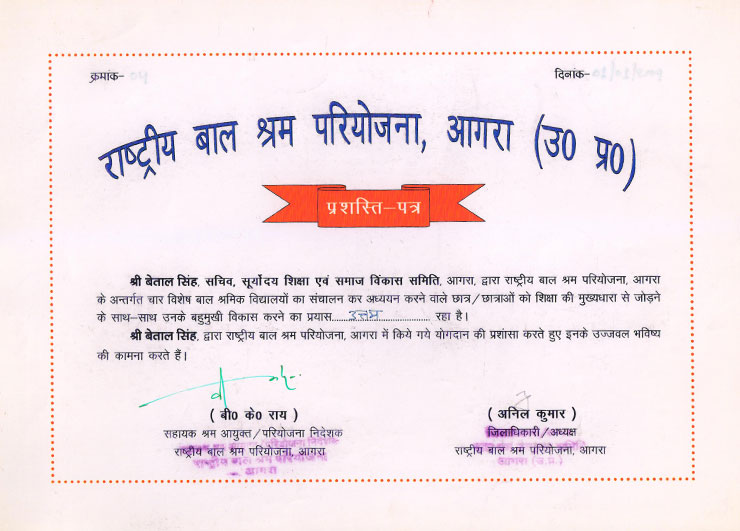 क्रमांक-
दिनांक-
राष्ट्रीय बाल श्रम परियोजना, आगरा (उ0 प्र0)
प्रशस्ति-पत्र
श्री बेताल सिंह, सचिव, सूर्योदय शिक्षा एवं समाज विकास समिति, आगरा, द्वारा राष्ट्रीय बाल श्रम परियोजना, आगरा
के अन्तर्गत चार विशेष बाल श्रमिक विद्यालयों का संचालन कर अध्ययन करने वाले छात्र/छात्राओं को शिक्षा की मुख्यधारा से जोड़ने
के साथ-साथ उनके बहुमुखी विकास करने का प्रयास....उत्तम....रहा है।
श्री बेताल सिंह, द्वारा राष्ट्रीय बाल श्रम परियोजना, आगरा में किये गये योगदान की प्रशंसा करते हुए इनके उज्जवल भविष्य
की कामना करते हैं।
( बी0 के0 राय )
( अनिल कुमार )
सहायक श्रम आयुक्त/परियोजना निदेशक
जिलाधिकारी/अध्यक्ष
राष्ट्रीय बाल श्रम परियोजना, आगरा
राष्ट्रीय बाल श्रम परियोजना, आगरा
राष्ट्रीय बाल श्रम परियोजना
आगरा
आगरा (उ.प्र.)